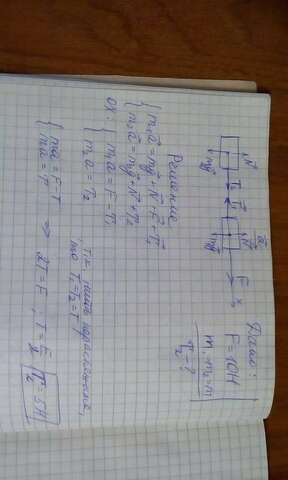 Дано:
F=10H
m₁=m₂=m
T₂-?
N N a
T₂ T₁ F x
mg mg
Решение
{ m₁a=mg+N+F+T₁
{ m₂a=mg+N+T₂
ox: { m₁a=F-T₁
{ m₂a=T₂
т.к. нить нерастяжима,
то T₁=T₂=T
{ ma=F-T
{ ma=T ⇒ 2T=F, T=F/2 T=5H